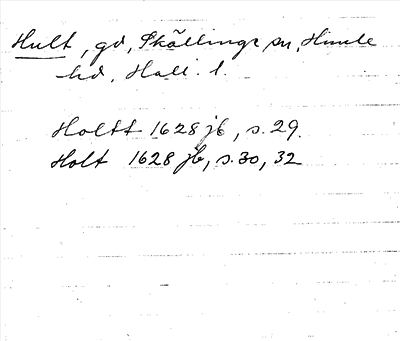 Hult, gd, Skällinge sn, Himle
hd, Hall. l.
Holtt 1628 jb, s. 29.
Holt 1628 jb, s. 30, 32